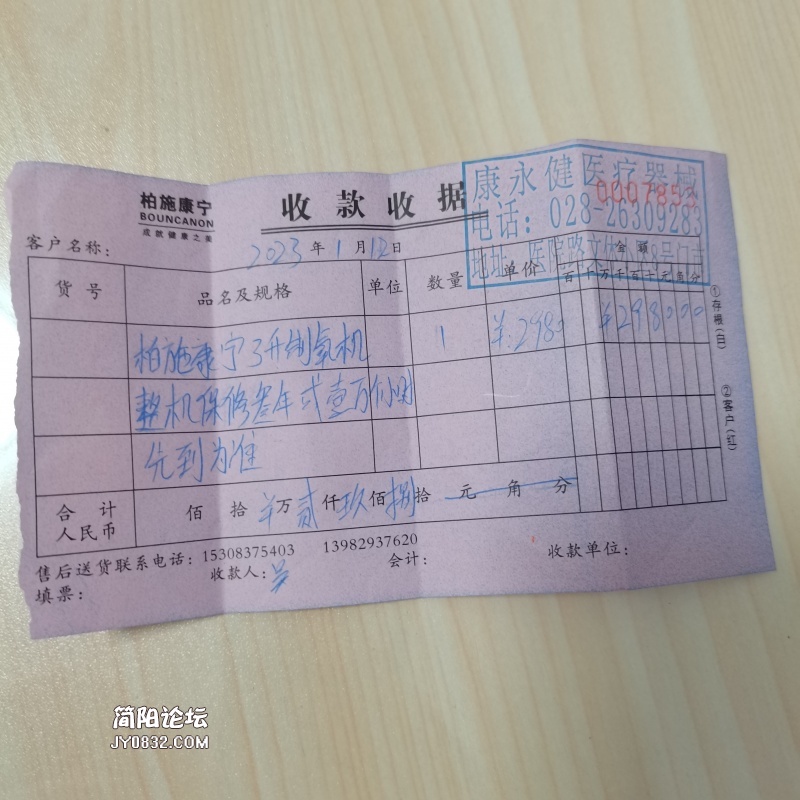 柏施康宁
BOUNCANON
成就健康之美
收款收据
康永健医疗器械
0007853
电话：028-26309283
地址：医院路
客户名称：
2023年1月12日
货号 品名及规格 单位 数量 单价 金额
百十万千百十元角分
柏施康宁3升制氧机 1 ¥:2980 ¥298000
整机保修叁年或壹万小时
先到为准
合计人民币 佰 拾 ¥万贰仟玖佰捌拾 元 角 分
①存根(白)
②客户(红)
售后送货联系电话：15308375403 13982937620
填票： 收款人： 会计： 收款单位：
简阳论坛
JY0832.COM